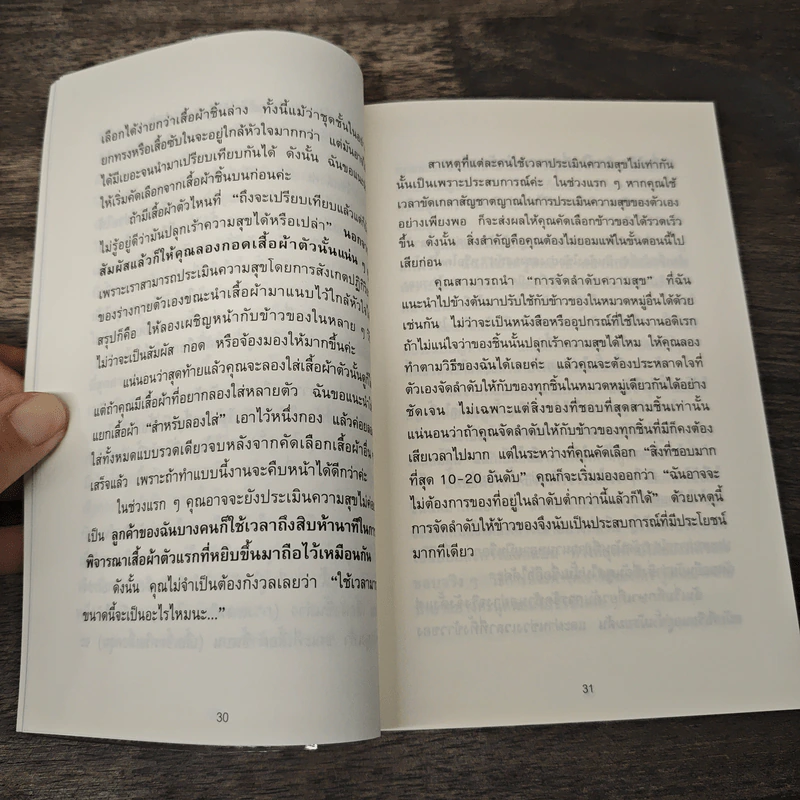 เลือกได้ง่ายกว่าเสื้อผ้าชิ้นล่าง ทั้งนี้แม้ว่าชุดชั้นใน
ยกทรงหรือเสื้อซับในจะอยู่ใกล้หัวใจมากกว่า แต่มัน
ได้มีเยอะจนนำมาเปรียบเทียบกันได้ ดังนั้น ฉันขอแนะ
ให้เริ่มคัดเลือกจากเสื้อผ้าชิ้นบนก่อนค่ะ
ถ้ามีเสื้อผ้าตัวไหนที่ “ถึงจะเปรียบเทียบแล้ว
ไม่รู้อยู่ดีว่ามันปลุกเร้าความสุขได้หรือเปล่า”
สัมผัสแล้วก็ให้คุณลองกอดเสื้อผ้าตัวนั้นแน่น ๆ
เพราะเราสามารถประเมินความสุขโดยการสังเกตปฏิกิริยา
ของร่างกายตัวเองขณะนำเสื้อผ้ามาแนบไว้ใกล้หัวใจ
สรุปก็คือ ให้ลองเผชิญหน้ากับข้าวของในหลาย ๆ
ไม่ว่าจะเป็นสัมผัส กอด หรือจ้องมองให้มากขึ้นค่ะ
แน่นอนว่าสุดท้ายแล้วคุณจะลองใส่เสื้อผ้าตัวนั้นดูก็
แต่ถ้าคุณมีเสื้อผ้าที่อยากลองใส่หลายตัว ฉันขอแนะนำ
แยกเสื้อผ้า “สำหรับลองใส่” เอาไว้หนึ่งกอง แล้วค่อย
ใส่ทั้งหมดแบบรวดเดียวจบหลังจากคัดเลือกเสื้อผ้าอื่น
เสร็จแล้ว เพราะถ้าทำแบบนี้งานจะคืบหน้าได้ดีกว่าค่ะ
ในช่วงแรก ๆ คุณอาจจะยังประเมินความสุขไม่ค่อย
เป็น ลูกค้าของฉันบางคนก็ใช้เวลาถึงสิบห้านาทีในการ
พิจารณาเสื้อผ้าตัวแรกที่หยิบขึ้นมาถือไว้เหมือนกัน
ดังนั้น คุณไม่จำเป็นต้องกังวลเลยว่า “ใช้เวลา
ขนาดนี้จะเป็นอะไรไหมนะ...”
30
สาเหตุที่แต่ละคนใช้เวลาประเมินความสุขไม่เท่ากัน
นั้นเป็นเพราะประสบการณ์ค่ะ ในช่วงแรก ๆ หากคุณใช้
เวลาขัดเกลาสัญชาตญาณในการประเมินความสุขของตัวเอง
อย่างเพียงพอ ก็จะส่งผลให้คุณคัดเลือกข้าวของได้รวดเร็ว
ขึ้น ดังนั้น สิ่งสำคัญคือคุณต้องไม่ยอมแพ้ในขั้นตอนนี้ไป
เสียก่อน
คุณสามารถนำ “การจัดลำดับความสุข” ที่ฉัน
แนะนำไปข้างต้นมาปรับใช้กับข้าวของในหมวดหมู่อื่นได้ด้วย
เช่นกัน ไม่ว่าจะเป็นหนังสือหรืออุปกรณ์ที่ใช้ในงานอดิเรก
ถ้าไม่แน่ใจว่าของชิ้นนั้นปลุกเร้าความสุขได้ไหม ให้คุณลอง
ทำตามวิธีของฉันได้เลยค่ะ แล้วคุณจะต้องประหลาดใจที่
ตัวเองจัดลำดับให้กับของทุกชิ้นในหมวดหมู่เดียวกันได้อย่าง
ชัดเจน ไม่เฉพาะแต่สิ่งของที่ชอบที่สุดสามชิ้นเท่านั้น
แน่นอนว่าถ้าคุณจัดลำดับให้กับข้าวของทุกชิ้นที่มีก็คงต้อง
เสียเวลาไปมาก แต่ในระหว่างที่คุณคัดเลือก “สิ่งที่ชอบมาก
ที่สุด 10-20 อันดับ” คุณก็จะเริ่มมองออกว่า “ฉันอาจจะ
ไม่ต้องการของที่อยู่ในลำดับต่ำกว่านี้แล้วก็ได้” ด้วยเหตุนี้
การจัดลำดับให้ข้าวของจึงนับเป็นประสบการณ์ที่มีประโยชน์
มากทีเดียว
31